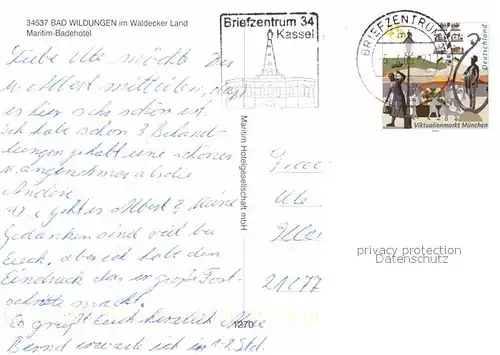 34537 BAD WILDUNGEN im Waldecker Land
Maritim-Badehotel
Liebe Ute möchte Dir
u. Albert mitteilen, daß
es hier sehr schön ist.
Ich habe schon 3 Behand-
lungen gehabt eine schöner
u. angenehmer als die
Andere
Wie geht es Albert? Meine
Gedanken sind viel bei
Euch, aber ich habe den
Eindruck das er große Fort-
schritte macht.
Es grüßt Euch herzlich
Bernd erwarte ich in 1-2 Std.
Maritim Hotelgesellschaft mbH
1270
Briefzentrum 34
Kassel
BRIEFZENTRUM
Deutschland
Viktualienmarkt München
Ute
21077
privacy protection
Datenschutz